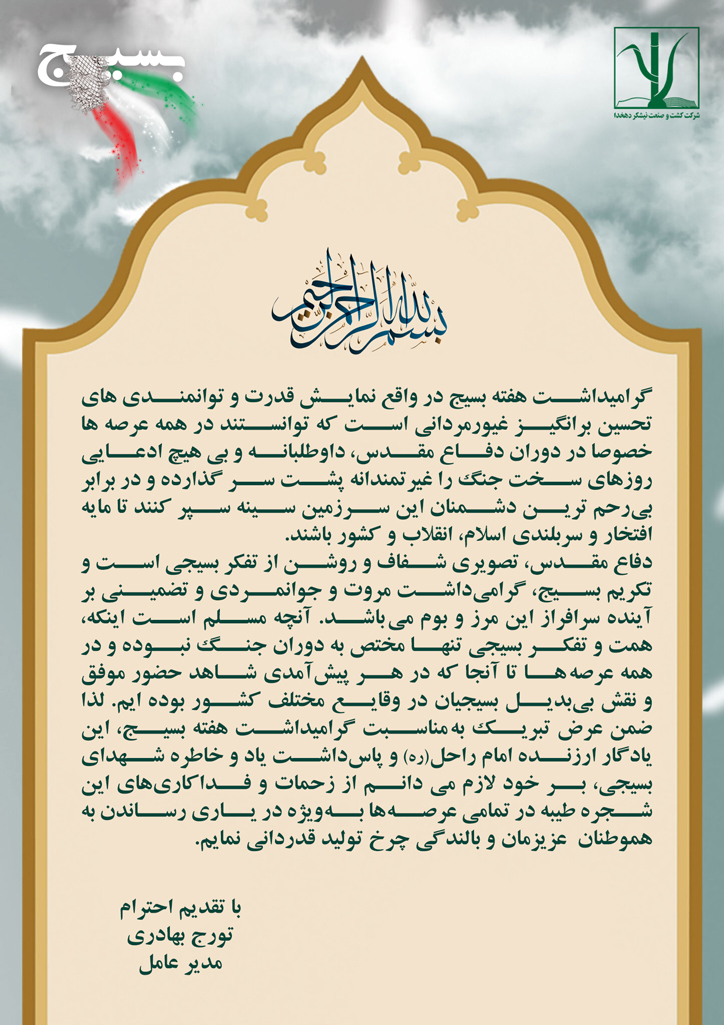 بسیج
شرکت کشت و صنعت نیشکر دهخدا
بسم الله الرحمن الرحیم
گرامیداشت هفته بسیج در واقع نمایش قدرت و توانمندی های
تحسین برانگیز غیورمردانی است که توانستند در همه عرصه ها
خصوصا در دوران دفاع مقدس، داوطلبانه و بی هیچ ادعایی
روزهای سخت جنگ را غیرتمندانه پشت سر گذارده و در برابر
بی‌رحم ترین دشمنان این سرزمین سینه سپر کنند تا مایه
افتخار و سربلندی اسلام، انقلاب و کشور باشند.
دفاع مقدس، تصویری شفاف و روشن از تفکر بسیجی است و
تکریم بسیج، گرامی‌داشت مروت و جوانمردی و تضمینی بر
آینده سرافراز این مرز و بوم می‌باشد. آنچه مسلم است اینکه،
همت و تفکر بسیجی تنها مختص به دوران جنگ نبوده و در
همه عرصه‌ها تا آنجا که در هر پیش‌آمدی شاهد حضور موفق
و نقش بی‌بدیل بسیجیان در وقایع مختلف کشور بوده ایم. لذا
ضمن عرض تبریک به‌مناسبت گرامیداشت هفته بسیج، این
یادگار ارزنده امام راحل(ره) و پاس‌داشت یاد و خاطره شهدای
بسیجی، بر خود لازم می دانم از زحمات و فداکاری‌های این
شجره طیبه در تمامی عرصه‌ها به‌ویژه در یاری رساندن به
هموطنان عزیزمان و بالندگی چرخ تولید قدردانی نمایم.
با تقدیم احترام
تورج بهادری
مدیر عامل